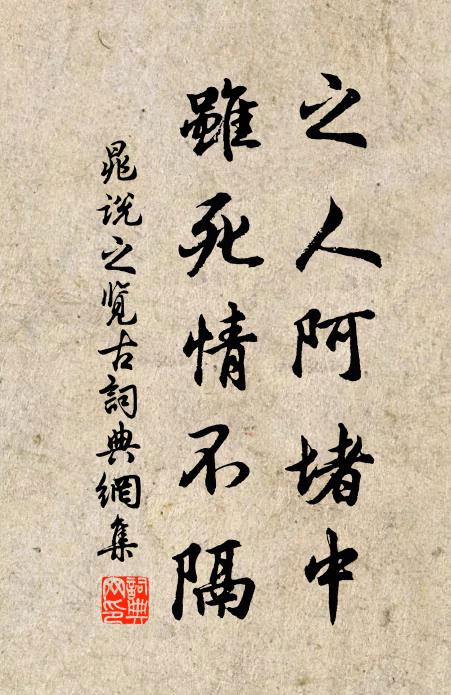 之人阿堵中
雖死情不隔
晁說之覽古詞典網集
詞典网印